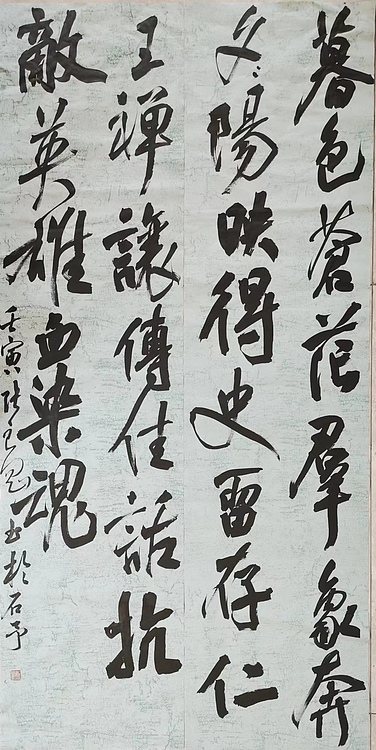 暮色蒼茫羣象奔
夕陽映得史留存仁
王禪讓傳佳話抗
敵英雄血染魂
壬寅张玉书於石